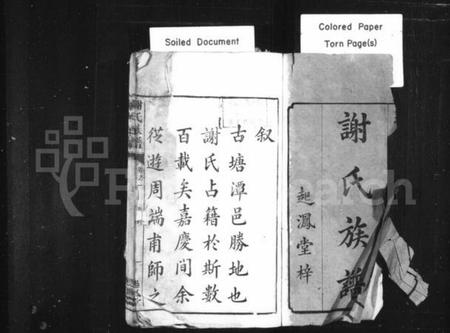 Soiled Document
Colored Paper
Torn Page(s)
謝氏族譜
起鳳堂梓
叙
古塘潭邑勝地也
謝氏占籍於斯數
百載矣嘉慶間余
從遊周端甫師之